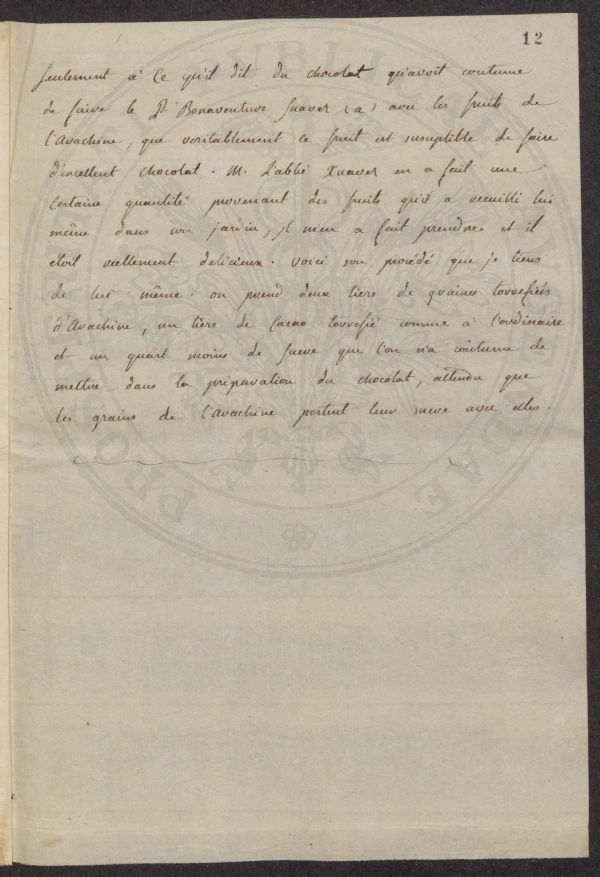 12
seulement à ce qu'il dit du chocolat qu'avoit coutume
de faire le Dr Bonaventure Suarez (a) avec les fruits de
l'Avachine, que veritablement ce fruit est susceptible de faire
d'excellent chocolat. M. L'abbé Xuarez en a fait une
certaine quantité provenant des fruits qu'il a recueilli lui
même dans son jardin, il m'en a fait prendre et il
étoit reellement delicieux. voici son procédé que je tiens
de lui même. on prend deux tiers de graines torrefiées
d'Avachine, un tiers de Cacao torrefié comme à l'ordinaire
et un quart moins de sucre que l'on n'a coûtume de
mettre dans la préparation du chocolat, attendu que
les grains de l'avachine portent leur sucre avec elles.